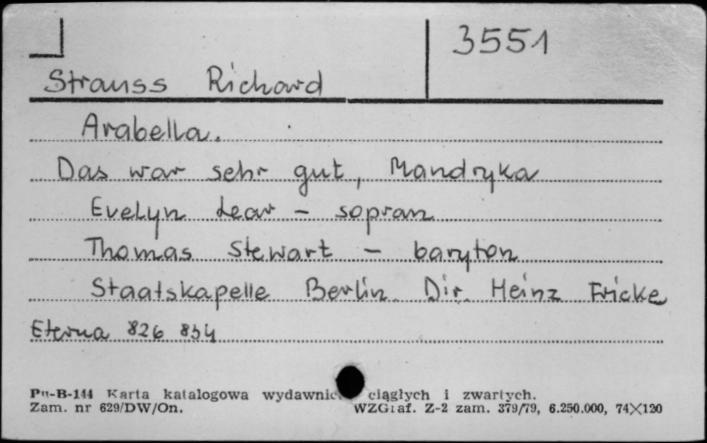 3551
Strauss Richard
Arabella.
Das war sehr gut, Mandryka
Evelyn Lear - sopran
Thomas Stewart - baryton
Staatskapelle Berlin Dir. Heinz Fricke
Eterna 826 834
Pu-B-144 Karta katalogowa wydawnic ciągłych i zwartych.
Zam. nr 629/DW/On. WZGraf. Z-2 zam. 379/79, 6.250.000, 74×120